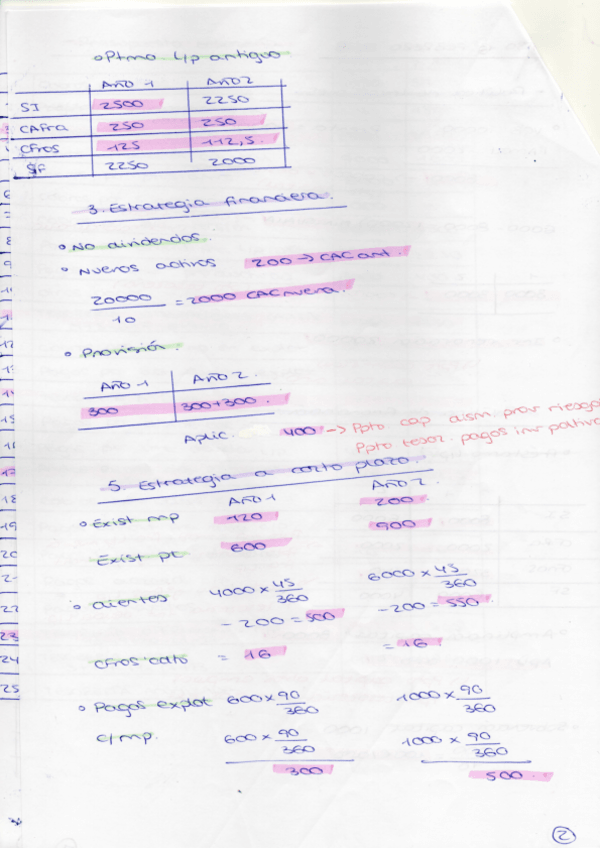 • Ptmo Lp antiguo.
AÑO 1 AÑO 2
SI 2500 2250
CAfra 250 250
Cfros 125 112,5.
SF 2250 2000
3. Estrategia financiera.
• No dividendos.
• Nuevos activos 200 → CAC ant.
20000 / 10 = 2000 CAC nueva.
• Provisión.
AÑO 1 AÑO 2.
300 300+300.
Aplic. 400 → Ppto cap dism. prov riesgo
Ppto tesor. pagos inv
5. Estrategia a corto plazo.
AÑO 1 AÑO 2.
• Exist mp 120 200
Exist pt 600 900
• Clientes 4000 x 45/360 6000 x 45/360
- 200 = 300 - 200 = 550
Cfros dcto = 16 = 16
• Pagos explot 600 x 90/360 1000 x 90/360
C/mp. 600 x 90/360 1000 x 90/360
300 500
2